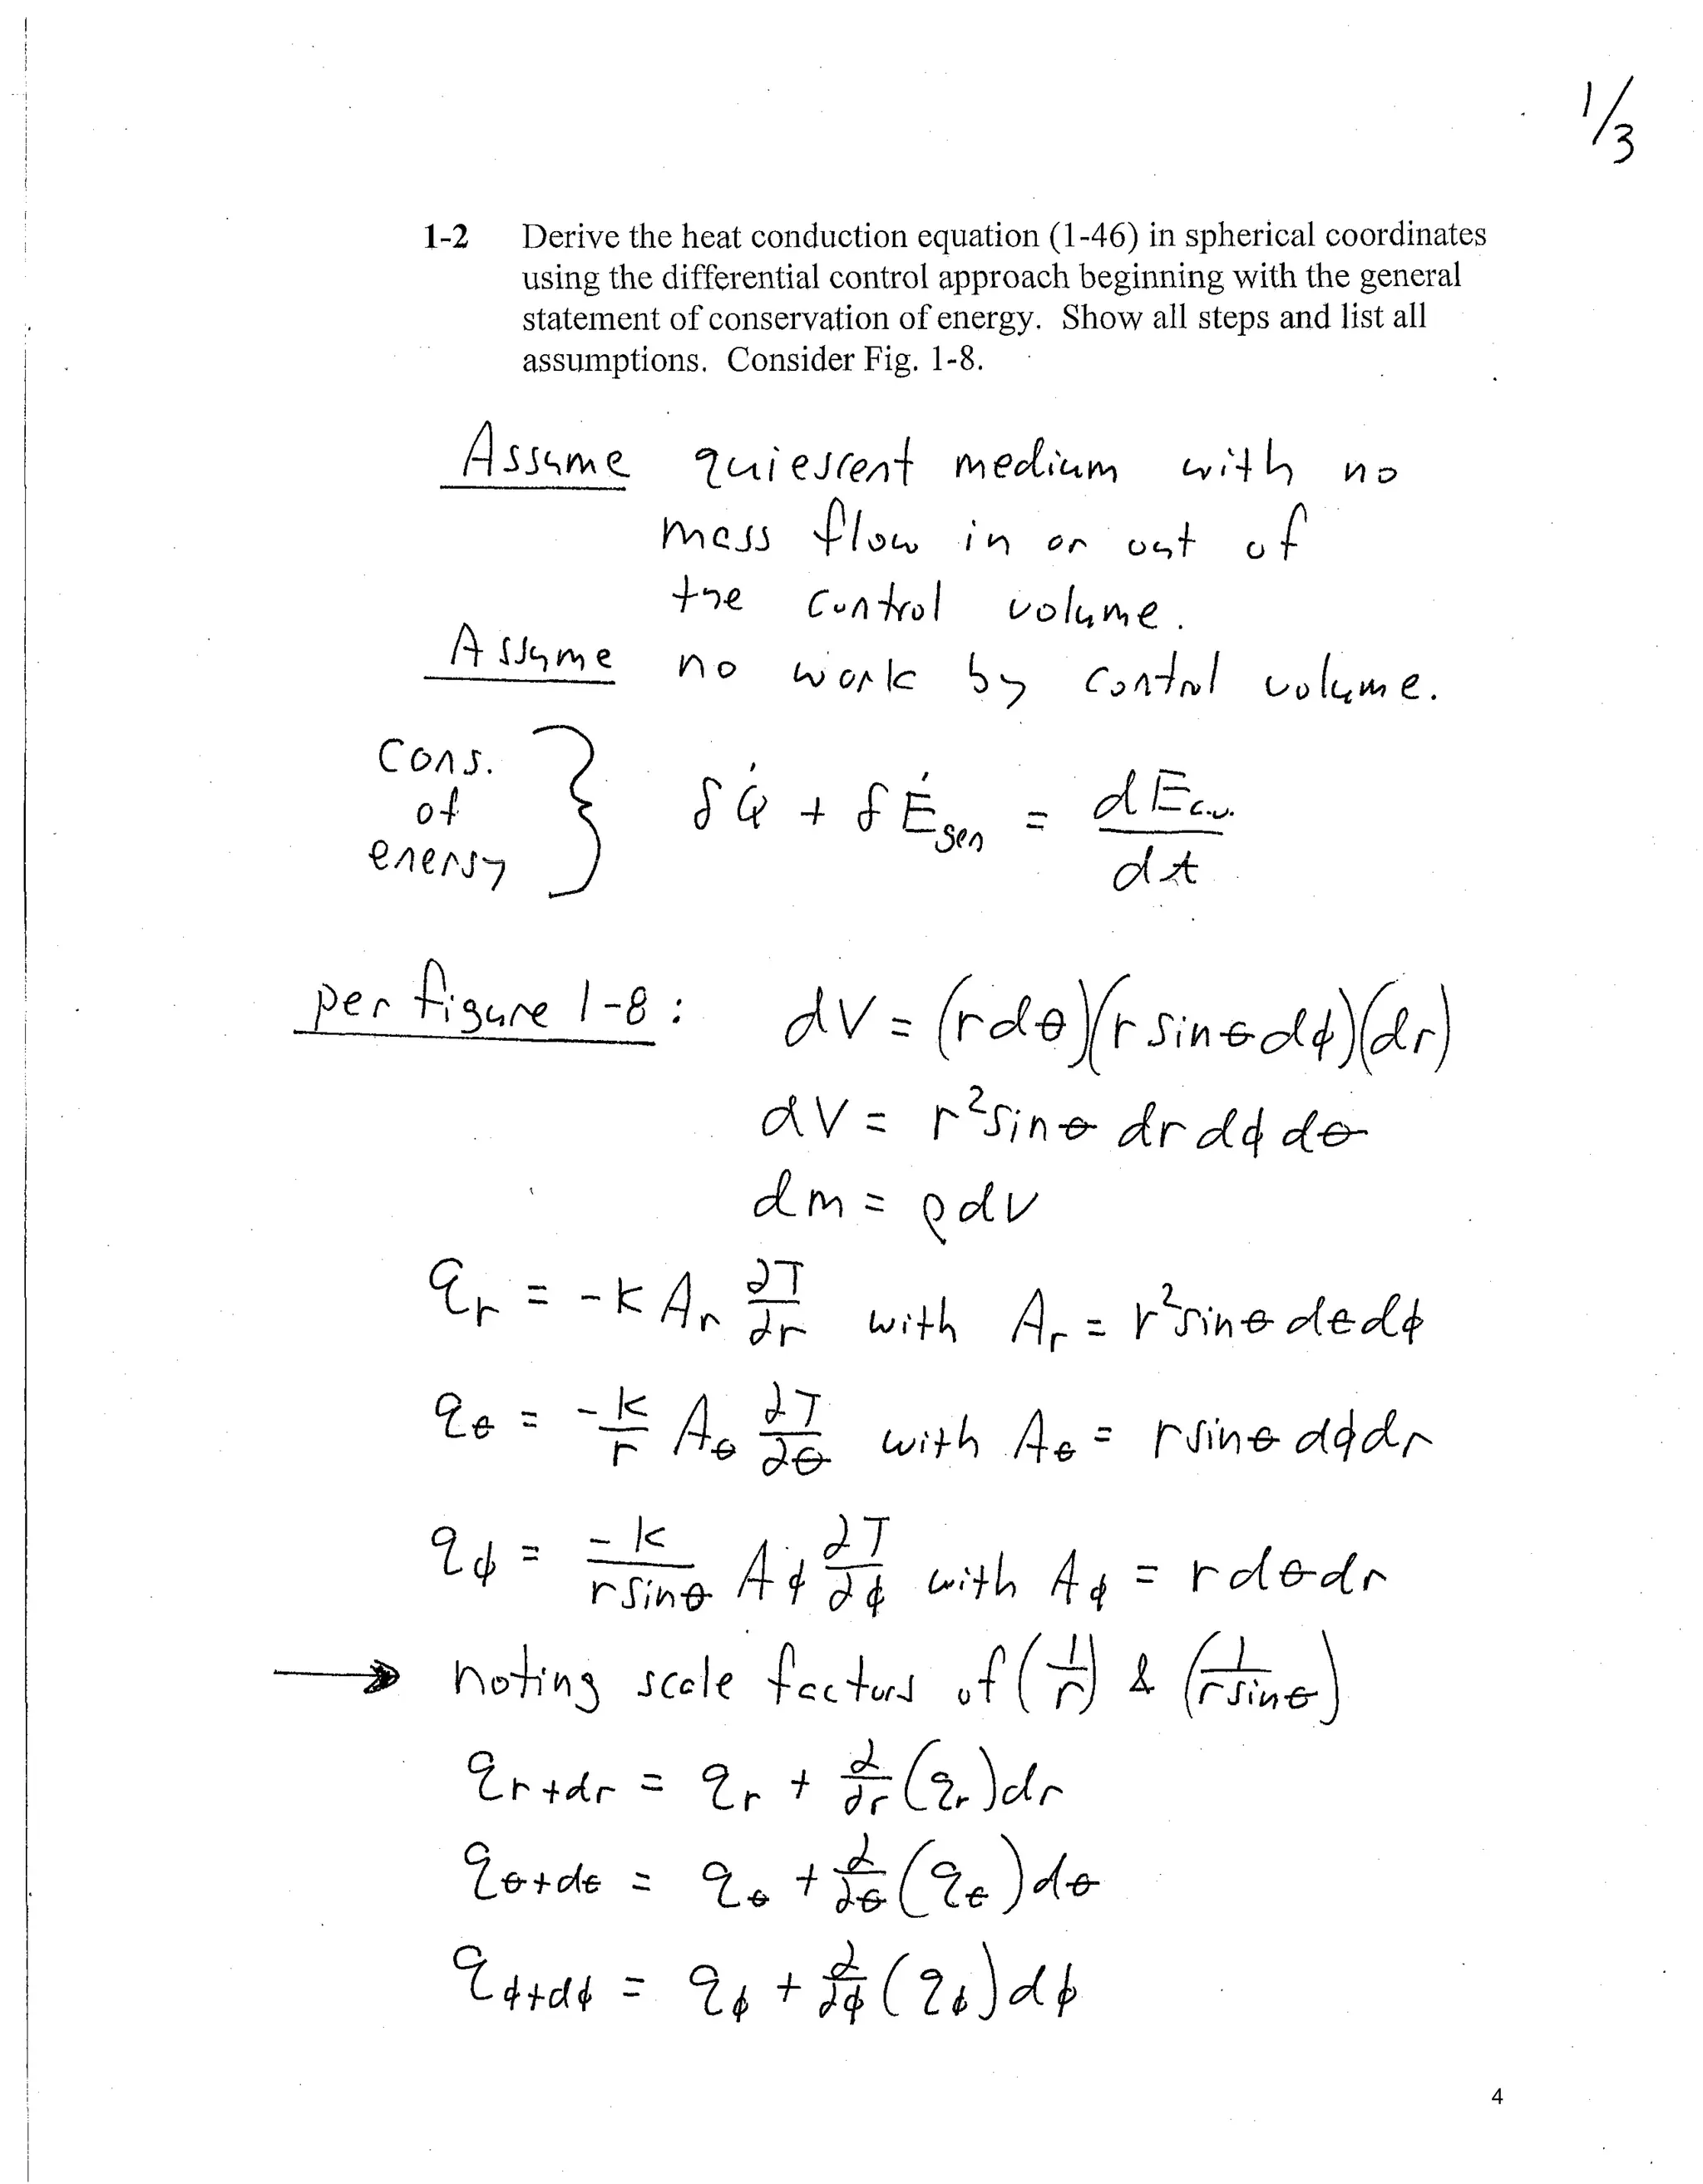 1/3
1-2 Derive the heat conduction equation (1-46) in spherical coordinates
using the differential control approach beginning with the general
statement of conservation of energy. Show all steps and list all
assumptions. Consider Fig. 1-8.
Assume quiescent medium with no
mass flow in or out of
the control volume.
Assume no work by control volume.
Cons. of energy } δQ̇ + δĖgen = dEc.v./dt
per figure 1-8: dV = (rdθ)(r sinθdϕ)(dr)
dV = r²sinθ dr dϕ dθ
dm = ρdV
qr = -k Ar ∂T/∂r with Ar = r²sinθ dθdϕ
qθ = -k/r Aθ ∂T/∂θ with Aθ = r sinθ dϕdr
qϕ = -k/(r sinθ) Aϕ ∂T/∂ϕ with Aϕ = r dθdr
→ noting scale factors of (1/r) & (1/(r sinθ))
qr+dr = qr + ∂/∂r (qr)dr
qθ+dθ = qθ + ∂/∂θ (qθ)dθ
qϕ+dϕ = qϕ + ∂/∂ϕ (qϕ)dϕ
4